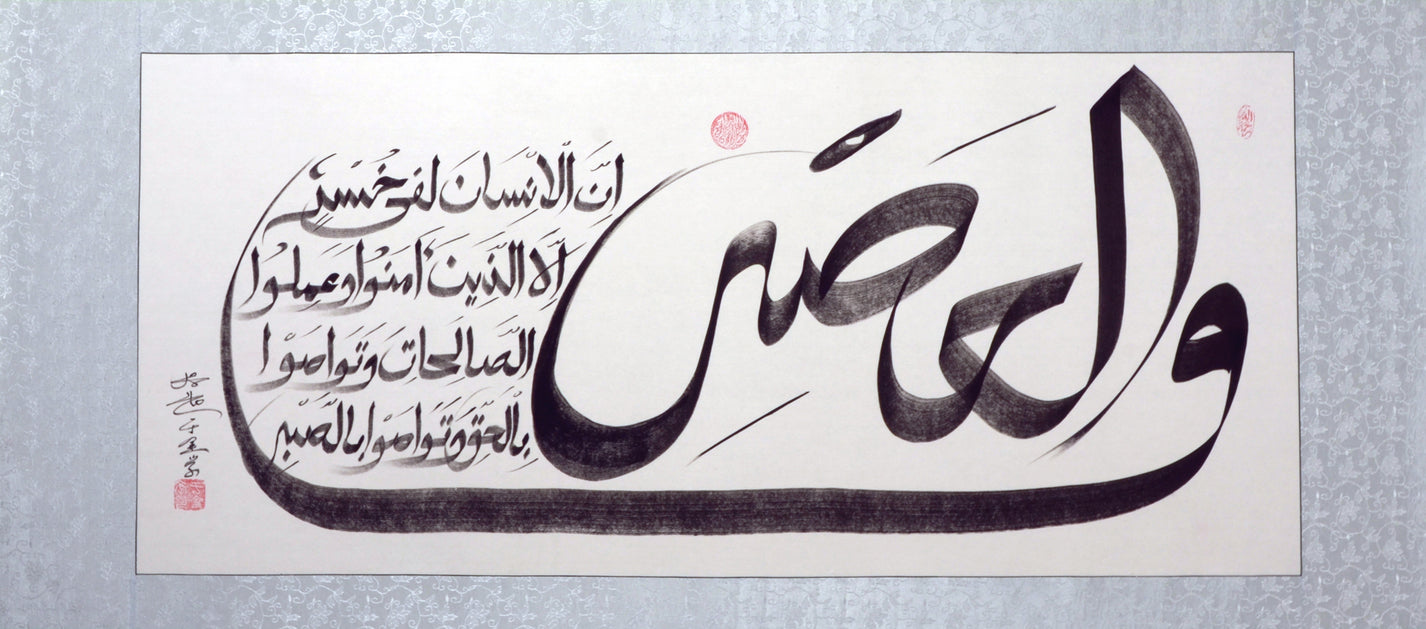 والعصر
اِنَّ الْاِنْسَانَ لَفِى خُسْرٍ
اِلَّا الَّذِينَ اٰمَنُوْا وَعَمِلُوْا
الصَّالِحَاتِ وَتَوَاصَوْا
بِالْحَقِّ وَتَوَاصَوْا بِالصَّبْرِ